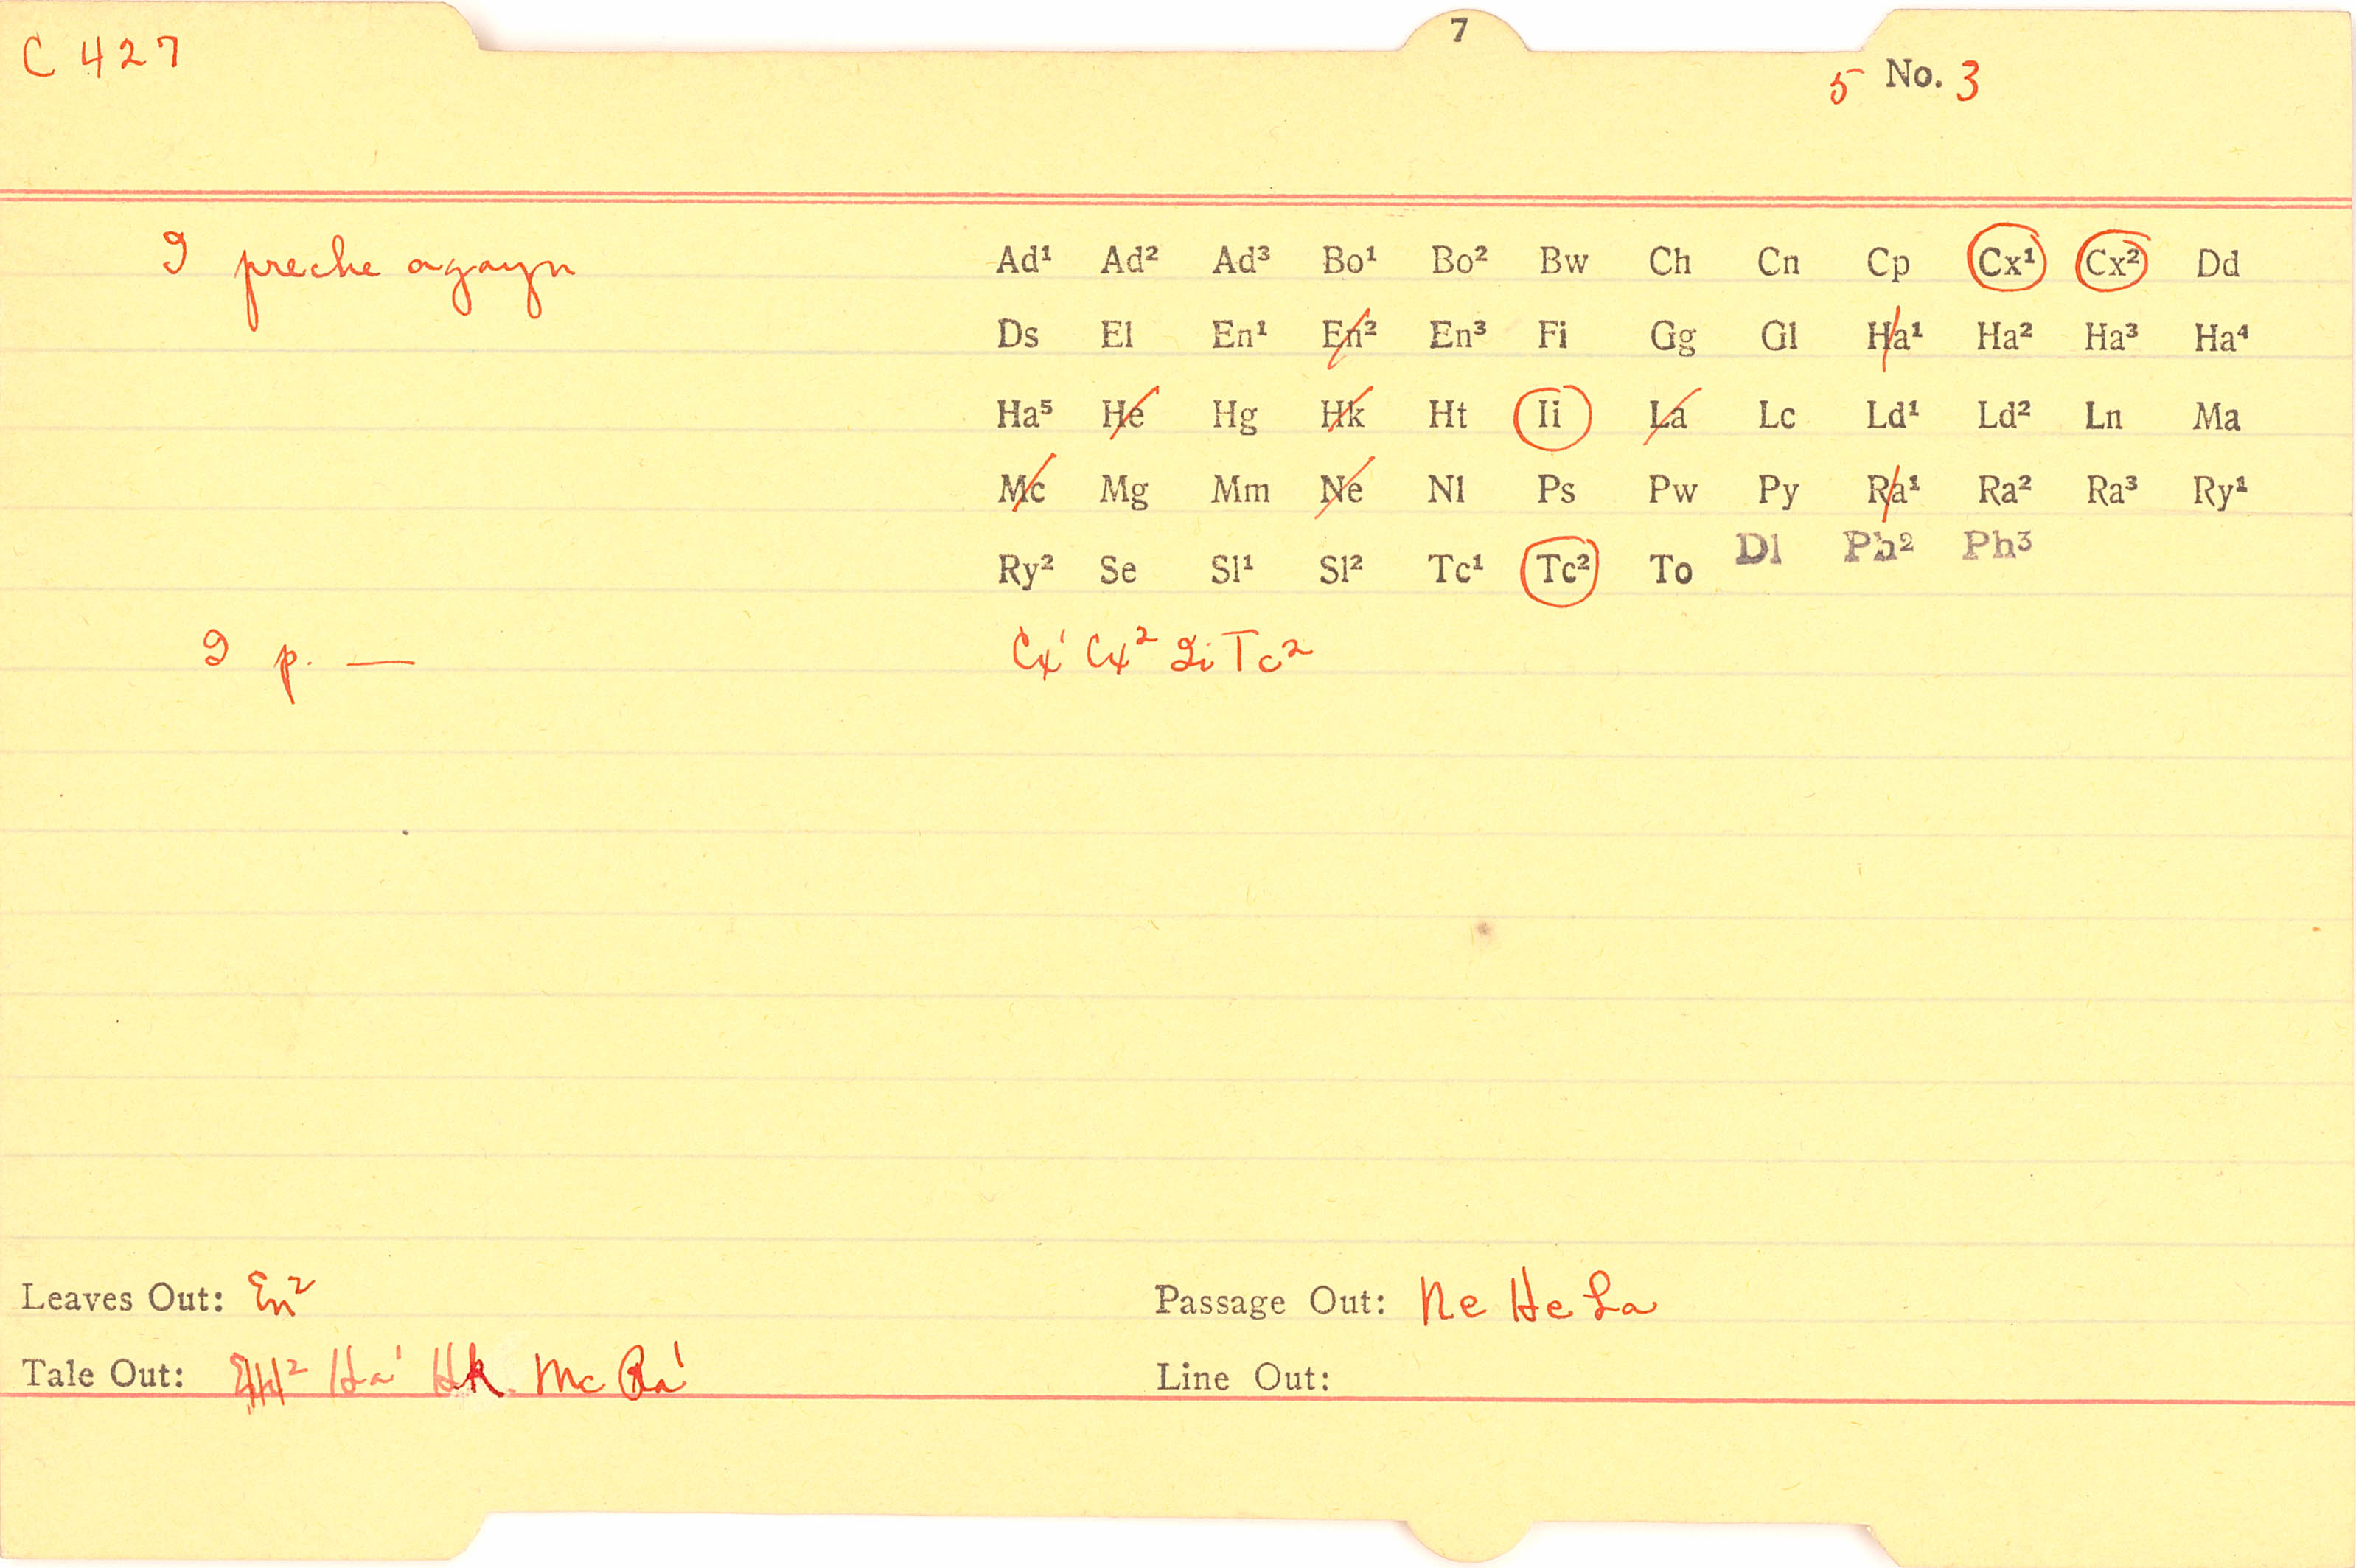 7
C 427
5 No. 3
I preche agayn Ad¹ Ad² Ad³ Bo¹ Bo² Bw Ch Cn Cp Cx¹ Cx² Dd
Ds El En¹ En² En³ Fi Gg Gl Ha¹ Ha² Ha³ Ha⁴
Ha⁵ He Hg Hk Ht Ii La Lc Ld¹ Ld² Ln Ma
Mc Mg Mm Ne Nl Ps Pw Py Ra¹ Ra² Ra³ Ry¹
Ry² Se Sl¹ Sl² Tc¹ Tc² To Dl Ph² Ph³
I p. — Cx¹ Cx² Ii Tc²
Leaves Out: En² Passage Out: Ne He La
Tale Out: En² Ha¹ Hk Mc Ra¹ Line Out: